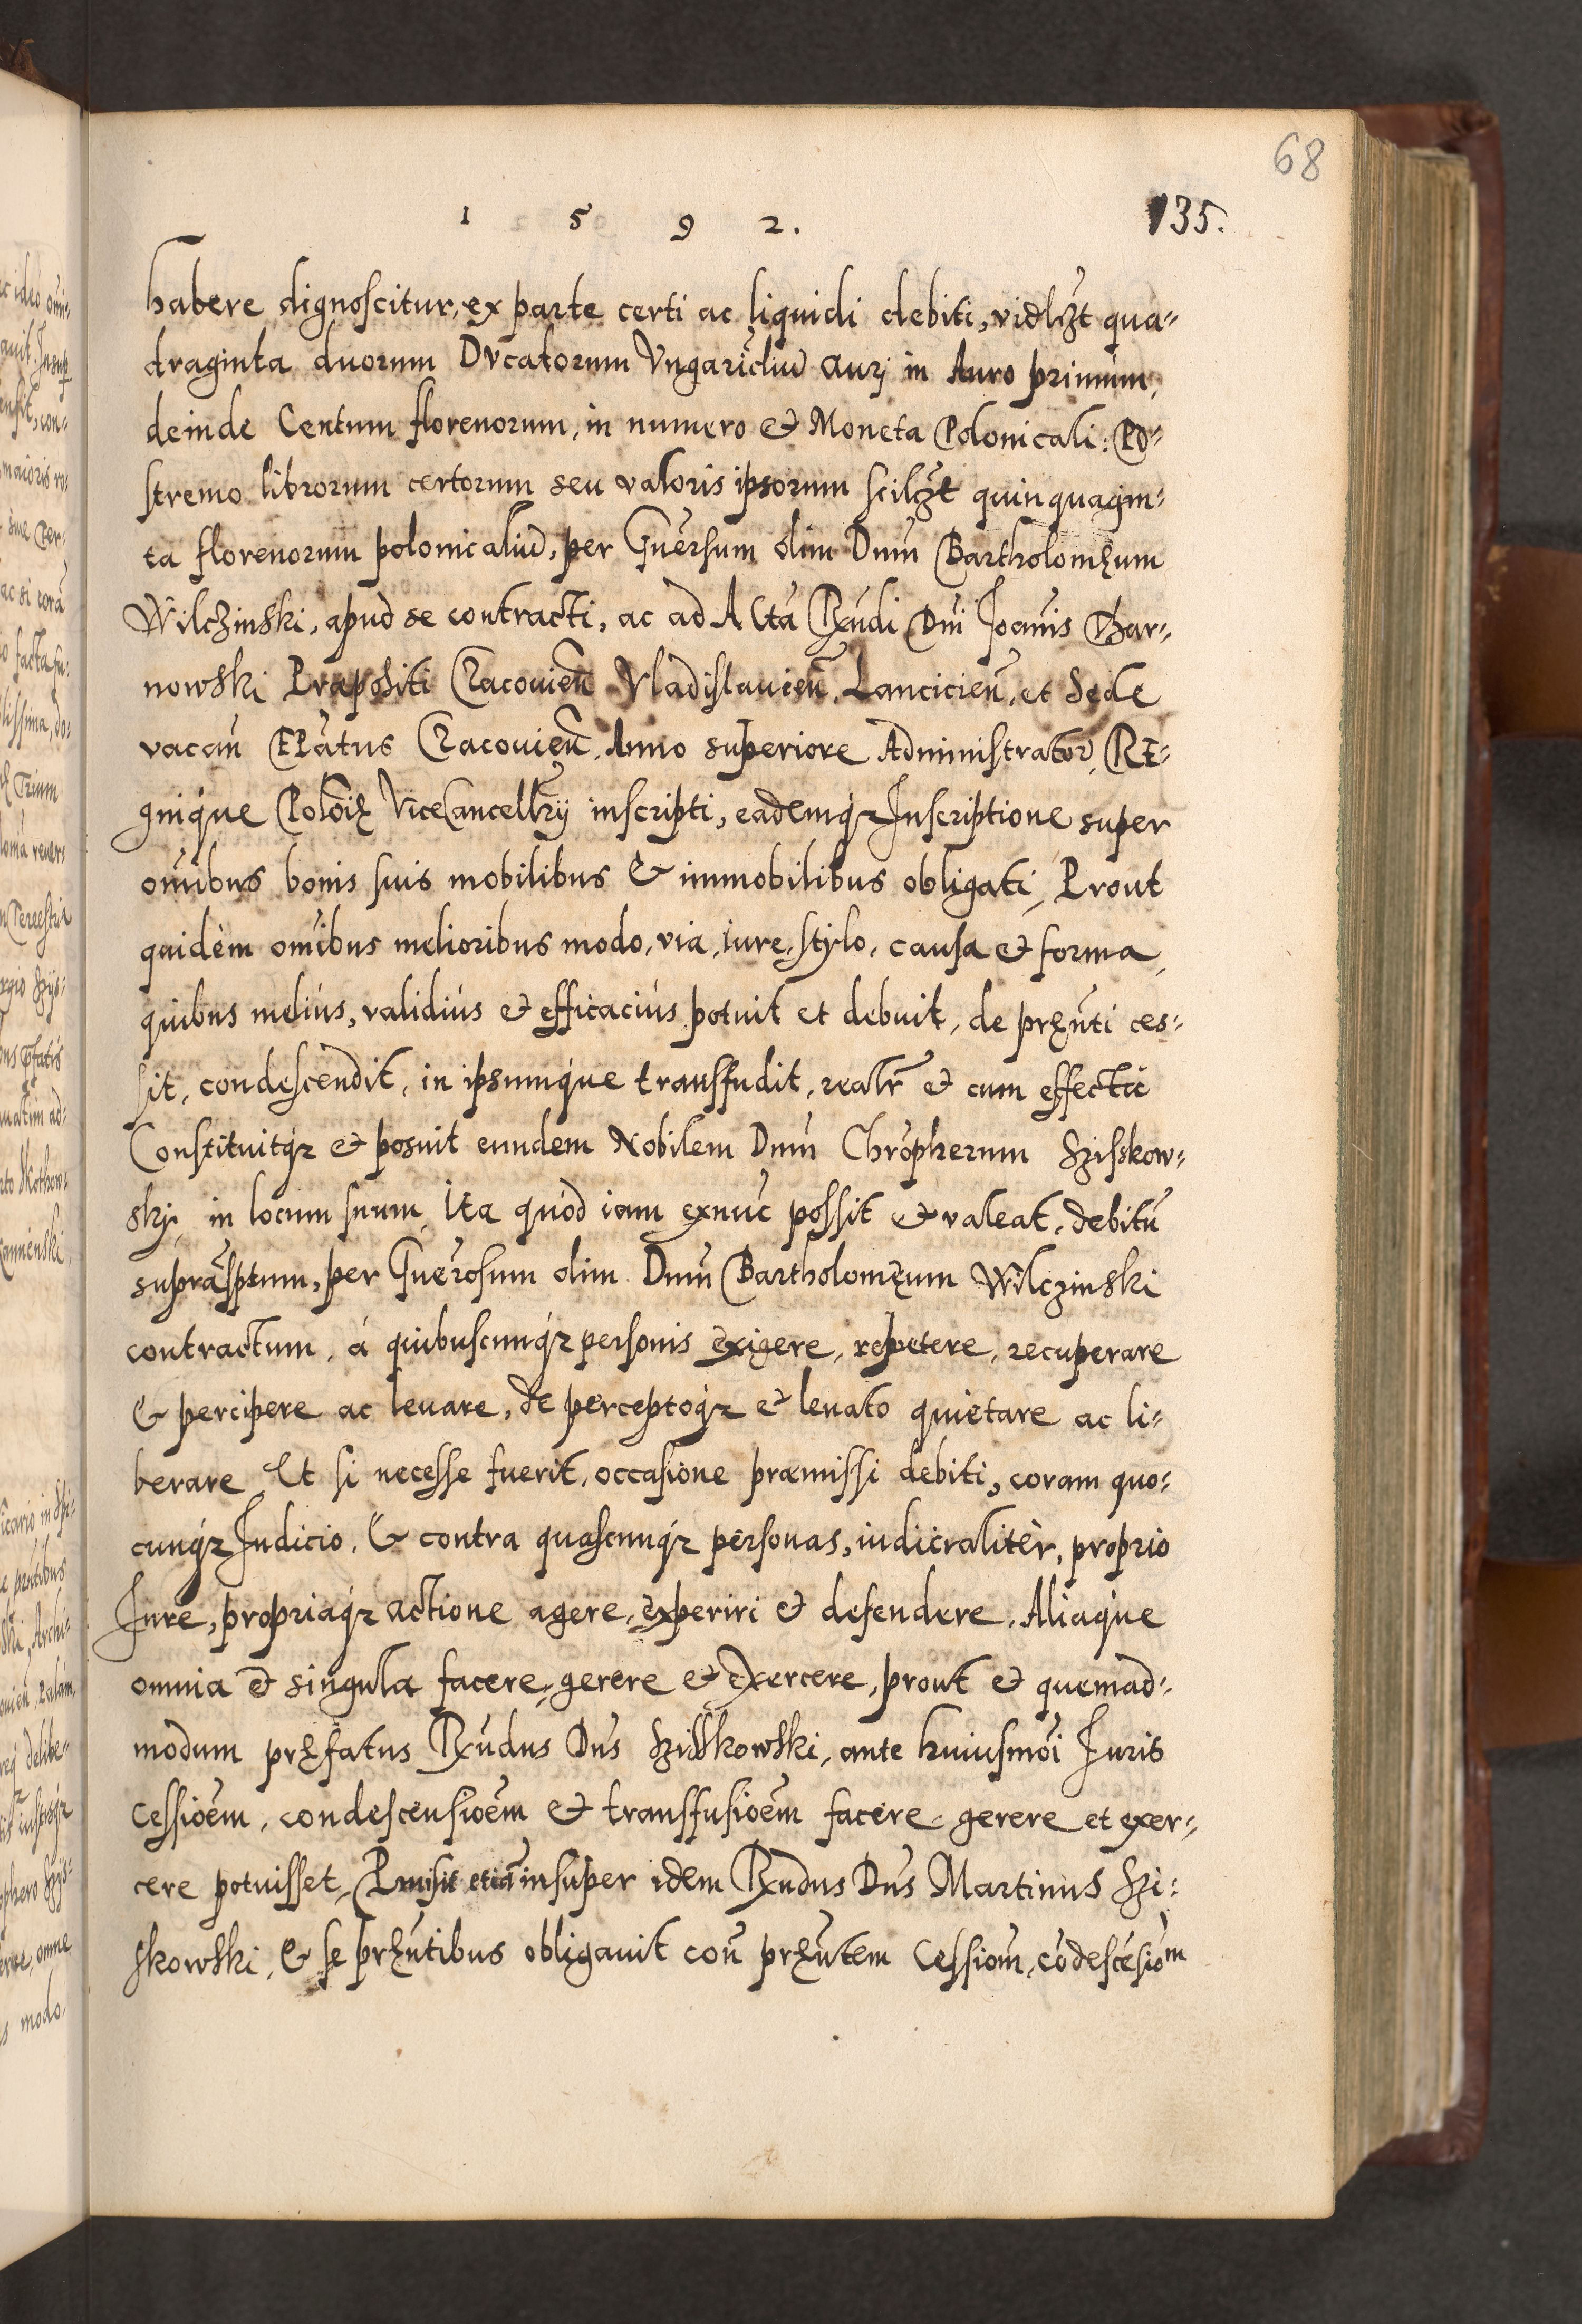 68
1 5 9 2.
135.
habere dignoscitur, ex parte certi ac liquidi debiti, vidlʒt qua⸗
draginta duorum Ducatorum Vngaricaliũ aurj in Auro primùm,
deinde Centum florenorum, in numero & Moneta Polonicali: Po⸗
stremo librorum certorum seu valoris ipsorum scilʒt quinquagin⸗
ta florenorum polonicaliũ, per Gnersum olim Dnũ Bartholomęum
Wilczinski, apud se contracti, ac ad Acta Rxndi Dni Joañis Thar⸗
nowski Præpositi Cracouieñ Vladislauieñ, Lancicieñ, et Sede
vacañ Ep̃atus Cracouieñ, Anno superiore Administrator, Re⸗
gnique Poloię ViceCancellrij inscripti, eademqꝫ Inscriptione super
oñibus bonis suis mobilibus & immobilibus obligati, Prout
quidem oñibus melioribus modo, via, iure, stylo, causa et forma,
quibus meliùs, validiùs et efficaciùs potuit et debuit, de pręnti ces⸗
sit, condescendit, in ipsumque transfudit, realr̃ et cum effectu
Constituitqꝫ et posuit eundem Nobilem Dnũ Chropherum Szisskow⸗
skj, in locum suum, Ita quòd iam exnuc possit et valeat, debitũ
suprasptum, per Gnerosum olim Dnũ Bartholomęum Wilczinski
contractum, à quibuscunqꝫ personis exigere, repetere, recuperare
& percipere ac leuare, de perceptoqꝫ et leuato quietare ac li⸗
berare, Et si necesse fuerit, occasione præmissi debiti, coram quo⸗
cunqꝫ Judicio, & contra quascunqꝫ personas, iudicialitèr, proprio
Jure, propriaqꝫ actione agere, experiri et defendere, Aliaque
omnia et singula facere, gerere et exercere, prout et quemad⸗
modum pręfatus Rxndus Dns Szisskowski, ante huiusmõi Juris
Cessioẽm, condescensioẽm et transfusioẽm facere gerere et exer⸗
cere potuisset, Pmisit etiã insuper idem Rxndus Dns Martinus Szi⸗
skowski, & se pręntibus obligauit coñ pręntem Cessioñm, cõdescẽsiom